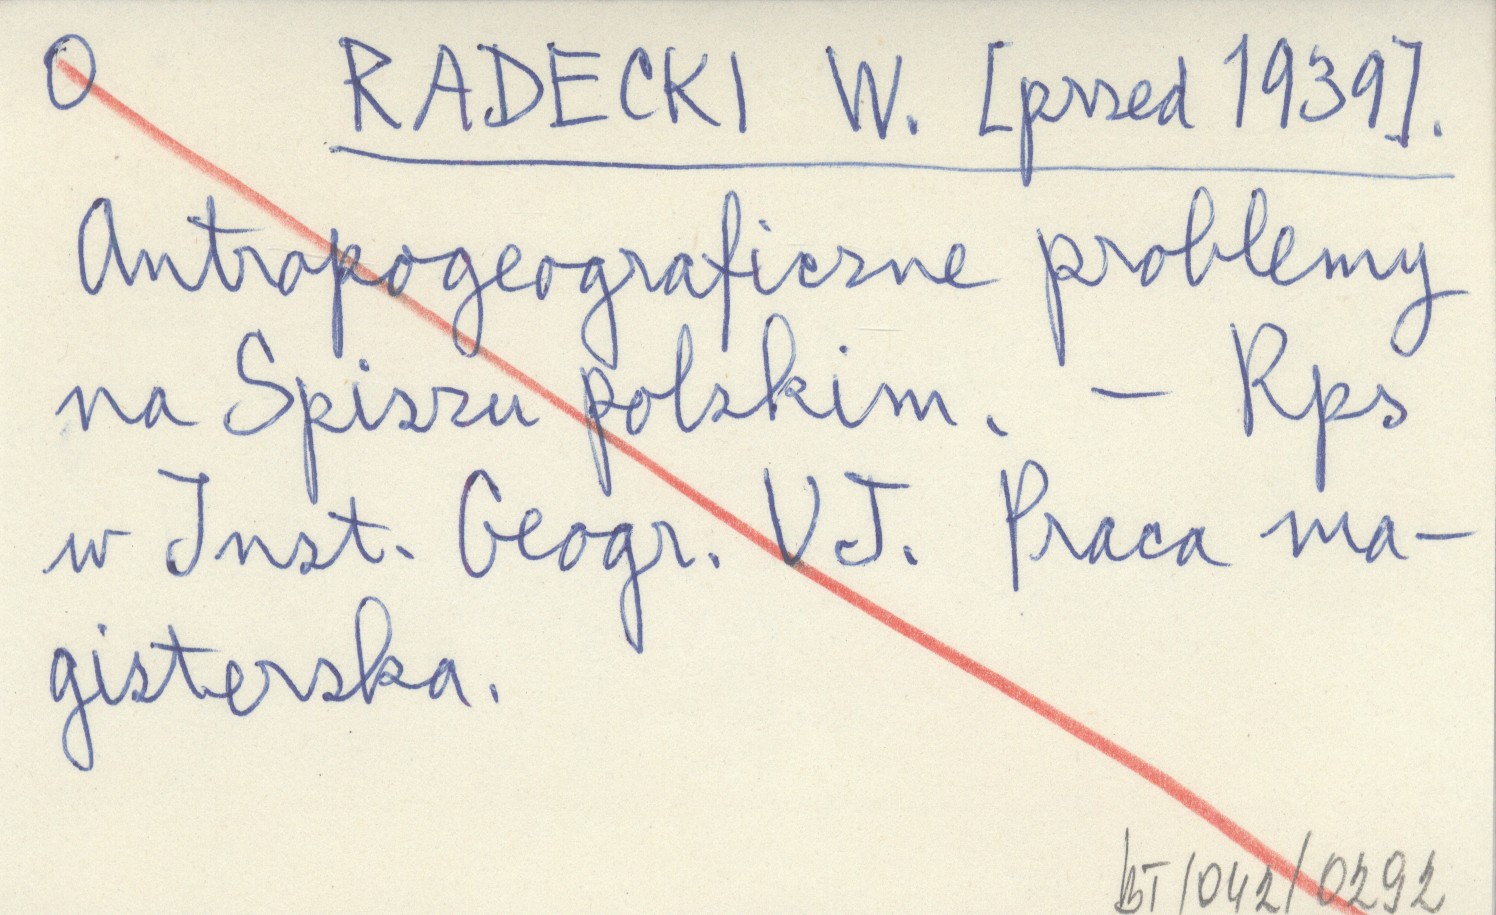 O RADECKI W. [przed 1939].
Antropogeograficzne problemy
na Spiszu polskim. – Rps
w Inst. Geogr. UJ. Praca ma-
gisterska.
BT/042/0292